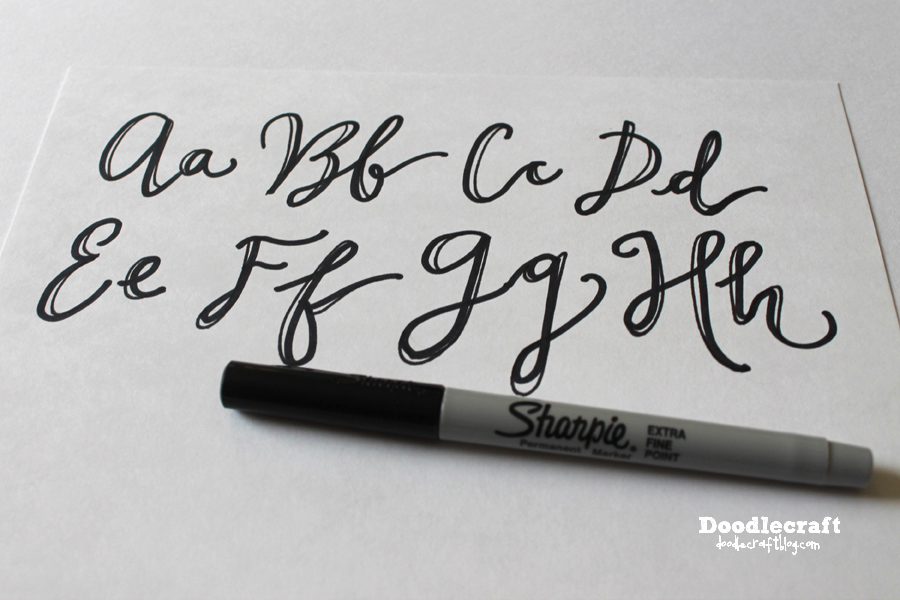 Aa Bb Cc Dd
Ee Ff Gg Hh
Sharpie®
Permanent Marker
EXTRA
FINE
POINT
Doodlecraft
doodlecraftblog.com